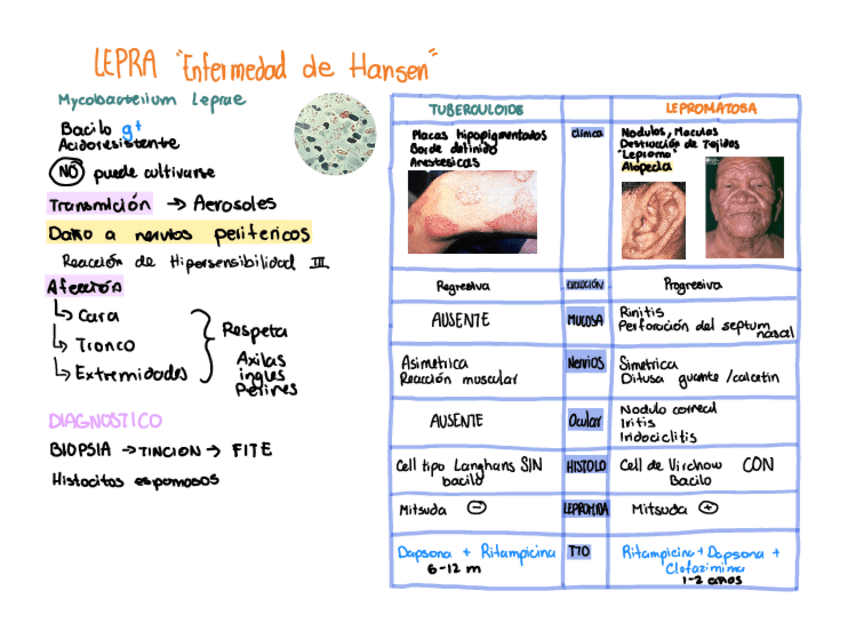 LEPRA "Enfermedad de Hansen"
Mycobacterium Leprae
Bacilo g+
Acidoresistente
NO puede cultivarse
Transmición → Aerosoles
Daño a nervios perifericos
Reacción de Hipersensibilidad III
Afección
↳ Cara
↳ Tronco
↳ Extremidades
Respeta
Axilas
ingles
Perines
DIAGNOSTICO
BIOPSIA → TINCION → FITE
Histocitos espomosos
TUBEROULOIDE
LEPROMATOSA
Placas hipopigmentadas
Borde definido
Anestesicas
Clinica
Nodulos, Maculas
Destrucción de Tejidos
"Lepromo"
Alopecia
Regresiva
EVOLUCIÓN
Progresiva
AUSENTE
MUCOSA
Rinitis
Perforación del septum
nasal
Asimetrica
Reacción muscular
Nervios
Simetrica
Difusa guante / calcetin
AUSENTE
Ocular
Nodulo corneal
Iritis
Iridociclitis
Cell tipo Langhans SIN
bacilo
HISTOLO
Cell de Virchow CON
Bacilo
Mitsuda -
LEPROMINA
Mitsuda +
Dapsona + Rifampicina
6-12 m
TTO
Rifampicina + Dapsona +
Clofazimina
1-2 años